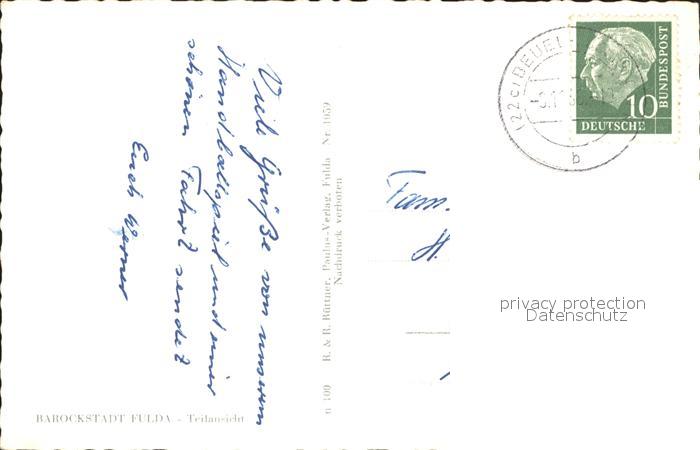 Viele Grüße von unserem
Handballspiel und einer
schönen Fahrt sendet
Euch Werner
BAROCKSTADT FULDA - Teilansicht
n 100 B. & R. Büttner, Paulus-Verlag, Fulda Nr. 1059
Nachdruck verboten
(22c) BEUEL
b
10
DEUTSCHE
BUNDESPOST
Fam.
H.
privacy protection
Datenschutz